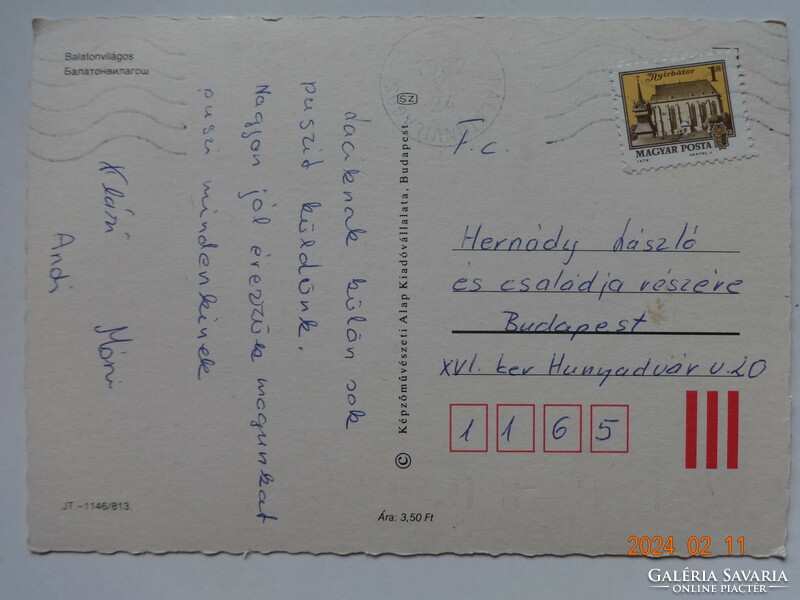 Balatonvilágos
Балатонвилагош
Laciknak külön sok
puszit küldünk.
Nagyon jól érezzük magunkat
puszi mindenkinek
Klári
Móni
Andi
JT.–1146/813.
Ára: 3,50 Ft
© Képzőművészeti Alap Kiadóvállalata, Budapest
SZ
Nyírbátor
1Ft
MAGYAR POSTA
1978
F. c.
Hernády László
és családja részére
Budapest
XVI. ker Hunyadvár u. 20
1 1 6 5
2024 02 11
GALÉRIA SAVARIA
ONLINE PIACTÉR